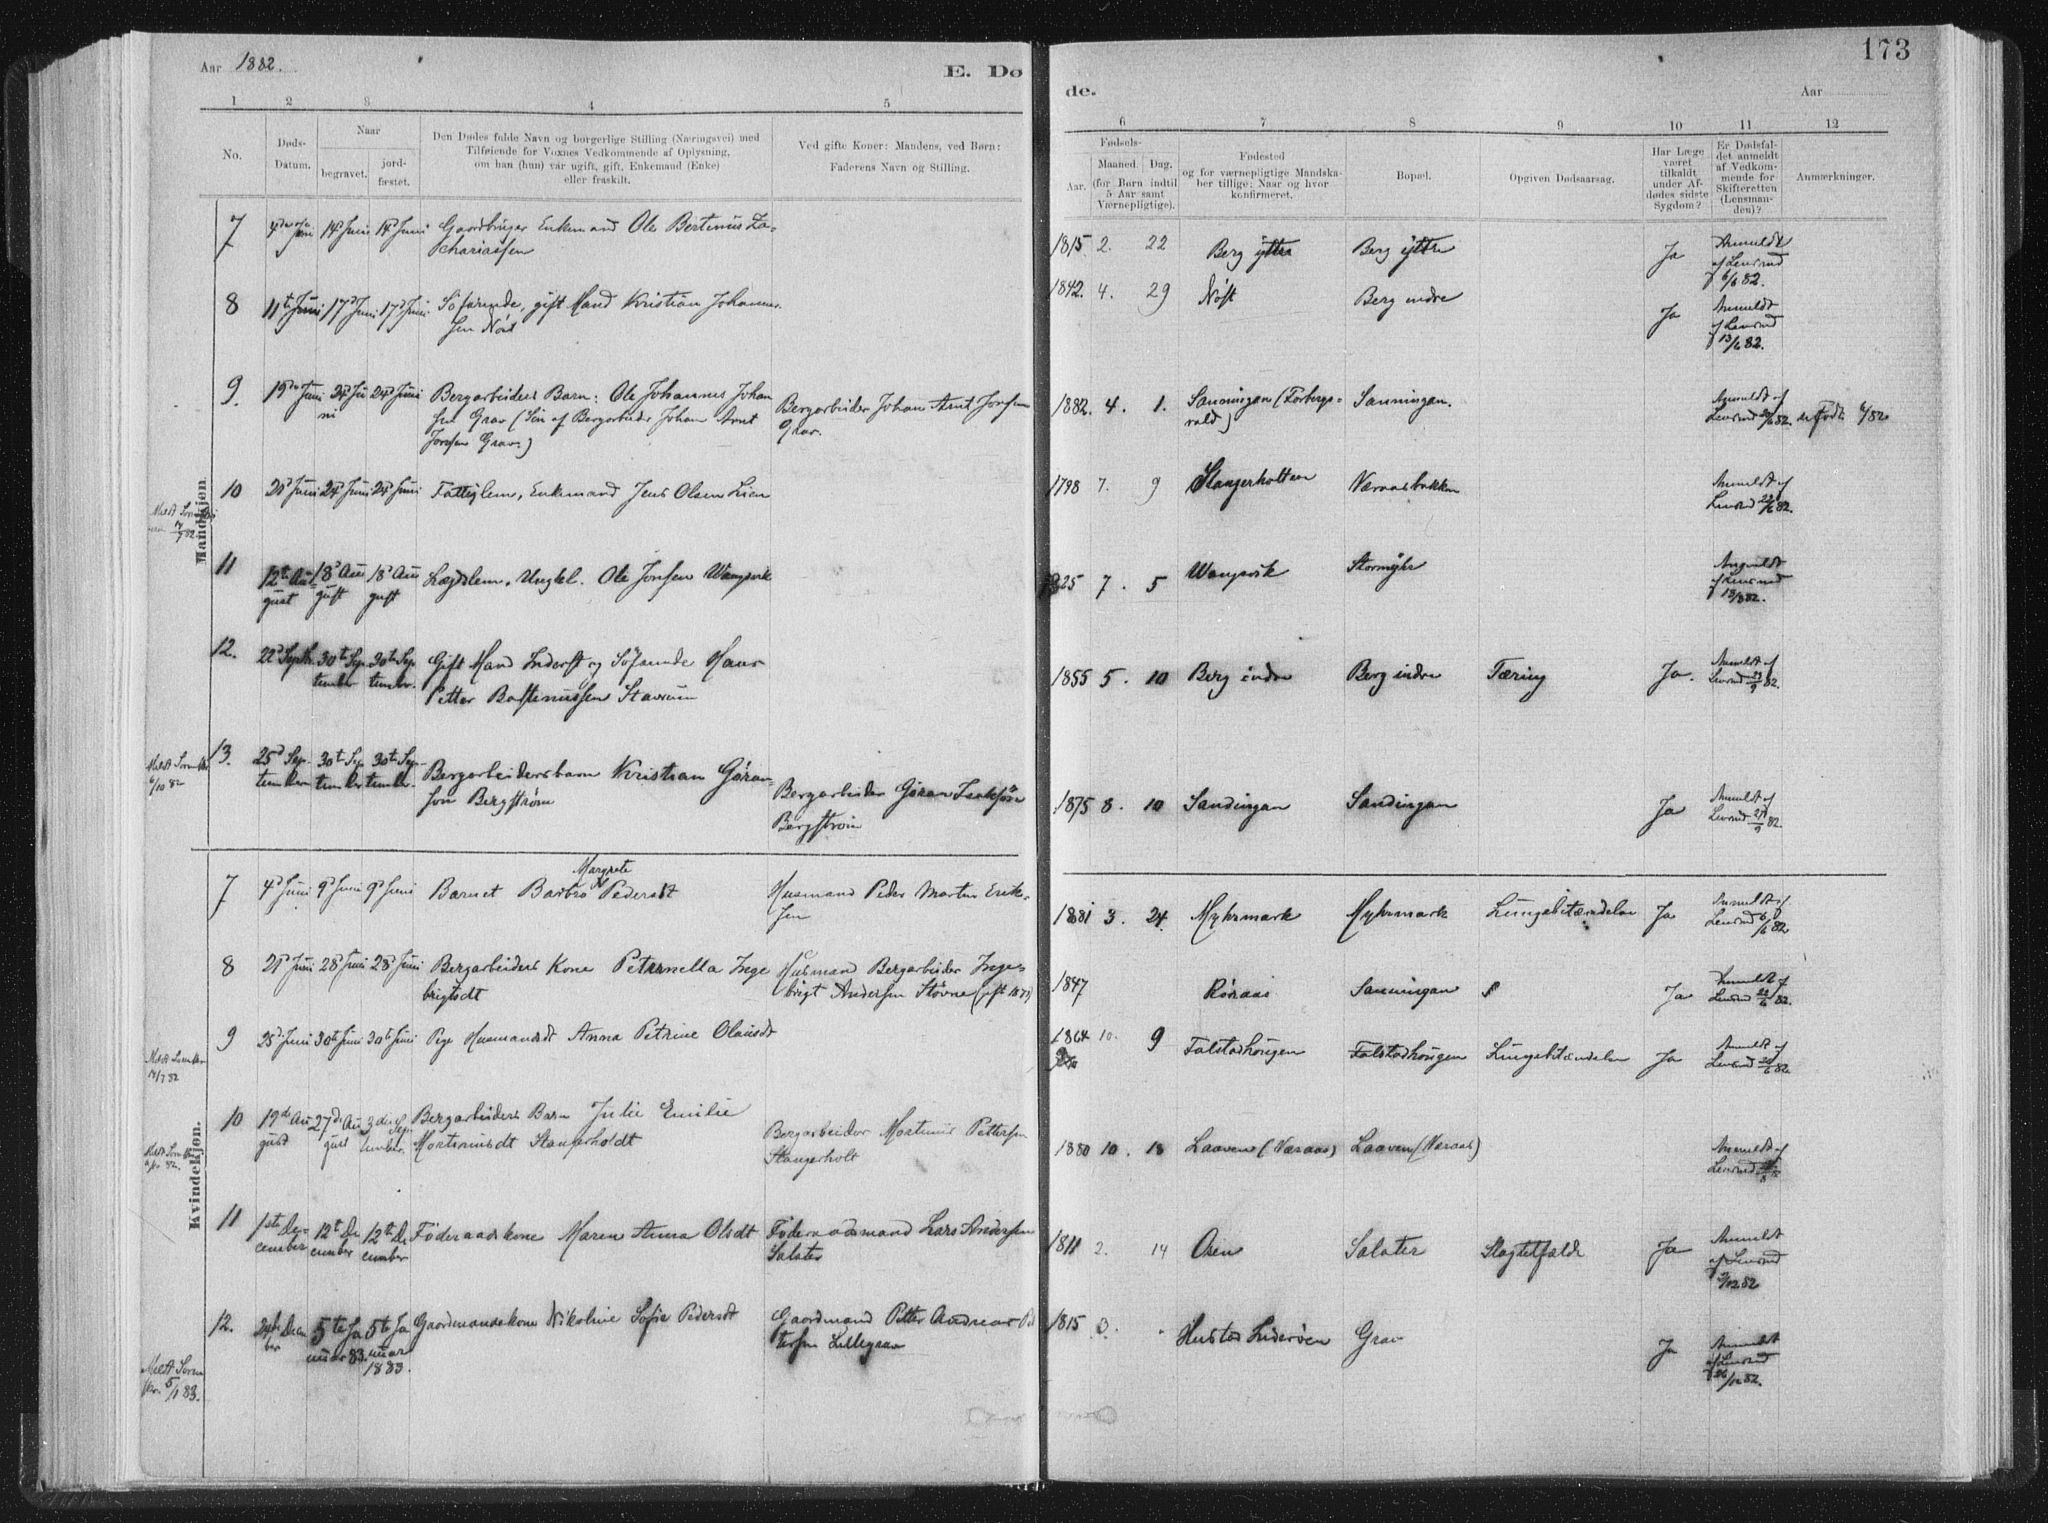 Aar 1882.
E. Dø
de.
Aar
173
1 2 3 4 5
6 7 8 9 10 11 12
No.
Døds-
Datum.
Naar
begravet.
jord-
fæstet.
Den Dødes fulde Navn og borgerlige Stilling (Næringsvei) med
Tilføiende for Voxnes Vedkommende af Oplysning,
om han (hun) var ugift, gift, Enkemand (Enke)
eller fraskilt.
Ved gifte Koner: Mandens, ved Børn:
Faderens Navn og Stilling.
Fødsels-
Aar.
Maaned. Dag.
(for Børn indtil
5 Aar samt
Værnepligtige).
Fødested
og for værnepligtige Mandska-
ber tillige: Naar og hvor
konfirmeret.
Bopæl.
Opgiven Dødsaarsag.
Har Læge
været
tilkaldt
under Af-
dødes sidste
Sygdom?
Er Dødsfal-
det anmeldt
af Vedkom-
mende for
Skifteretten
(Lensman-
den)?
Anmærkninger.
Mandkjøn.
7 14d Juni 14d Juni Gaardbruger Enkemand Ole Bertinus Za-
chariassen
1815 2. 22 Berg ytre Berg ytre Ja Anmeldt
af Lensmd
6/6 82.
8 11te Juni 17d Juni 17d Juni Söfarende, gift Mand Kristian Johannes-
sen Nöst
1842. 4. 29 Nöst Berg indre Ja Anmeldt
af Lensmd
13/6 82.
9. 19de Juni 24d Juni 24d Juni Bergarbeiders Barn: Ole Johannes Johan
sen Grav (Sön af Bergarbeider Johan Arnt
Jonsen Grav.)
Bergarbeider Johan Arnt Jonsen
Grav.
1882. 4. 1. Sanningan (Forbergs-
vald) Sanningan. Anmeldt af
Lensmd 82.
10 24d Juni 24d Juni Fattiglem, Enkemand Jens Olsen Lien
1798 7. 9 Stangerholtan Væraasbakken Anmeldt af
Lensmd 82.
11 12te Au-
gust 18d Au
gust 18d Au
gust Lægdslem, Ungkl. Ole Jonsen Wangsvik
1825 7. 5 Wangsvik Stormyhr Anmeldt
af Lensmd
13/8 82.
12. 22d Septb. 30te Sep
tember 30te Sep
tember. Gift Mand Inderst og Söfarende Hans
Petter Bastinussen Stavrum
1855 5. 10 Berg indre Berg indre Tæring Ja. Anmeldt af
Lensmd 23/9 82.
13. 25d Sep
tember 30te Sep
tember 30te Sep
tember. Bergarbeidersbarn Kristian Göran-
son Bergström
Bergarbeider Göran Isaksön
Bergström
1875 8. 10 Sandingan Sandingan Ja Anmeldt af
Lensmd 27/9 82.
6/10 82
Kvindekjøn.
7 4d Juni 9d Juni 9d Juni Barnet Barbro Margrete Pedersdt
Husmand Peder Martin Erik-
sen
1881 3. 24. Myhrmark Myhrmark Lungebetændelse Ja Anmeldt af
Lensmd 6/6 82
8 21d Juni 28d Juni 28d Juni Bergarbeiders Kone Peternella Inge
brigtsdt
Husmand Bergarbeider Inge-
brigt Andersen Stövne
1847 Röraas Sanningan Ja Anmeldt af
Lensmd 22/6 82.
9 25d Juni 30te Juni 30te Juni Pige Husmandsdt Anna Petrine Olausdt
1864 10. 9 Falstadhougen Falstadhougen Lungebetændelse Ja Anmeldt af
Lensmd 26/6 82.
10 19d Au
gust 27d Au
gust 3die Sep
tember. Bergarbeiders Barn Julie Emilie
Mortinusdt Stangerholdt
Bergarbeider Mortinus Pettersen
Stangerholt
1880 10. 18 Laaven (Væraas) Laaven (Væraas) Anmeldt af
Lensmd
11 1ste De-
cember 12te De
cember 12te De
cember Föderaadskone Maren Anna Olsdt
Föderaadsmand Lars Andersen
Salater
1811 2. 14 Osen Salater Slagtilfælde Ja Anmeldt
af Lensmd
12 82
12. 24de Decem
ber 5te Ja
nuar 83. 5te Ja
nuar
1883. Gaardmandskone Nikoline Sofie Pedersdt
Gaardmand Petter Andreas Pet
tersen Lillegrav
1815 3. Hustad Inderöen Grav Ja Anmeldt
af Lensmd
26/12 82.
5/1 83.